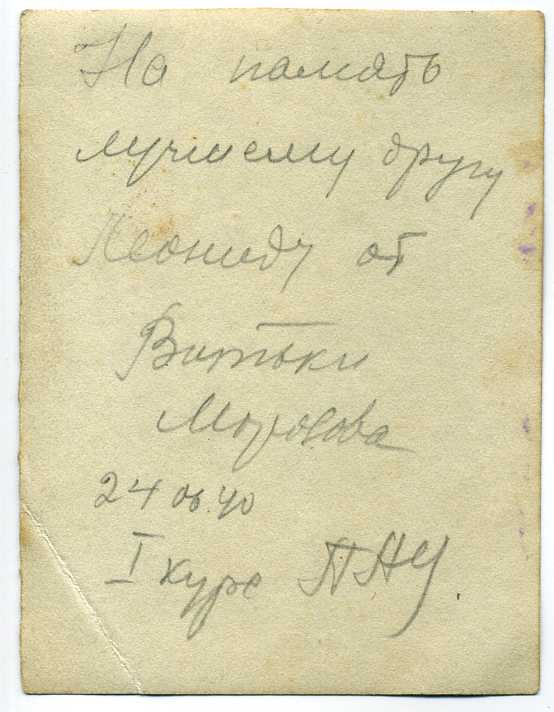 На память
лучшему другу
Леониду от
Витьки
Морозова
24 06.40
I курс ПАУ